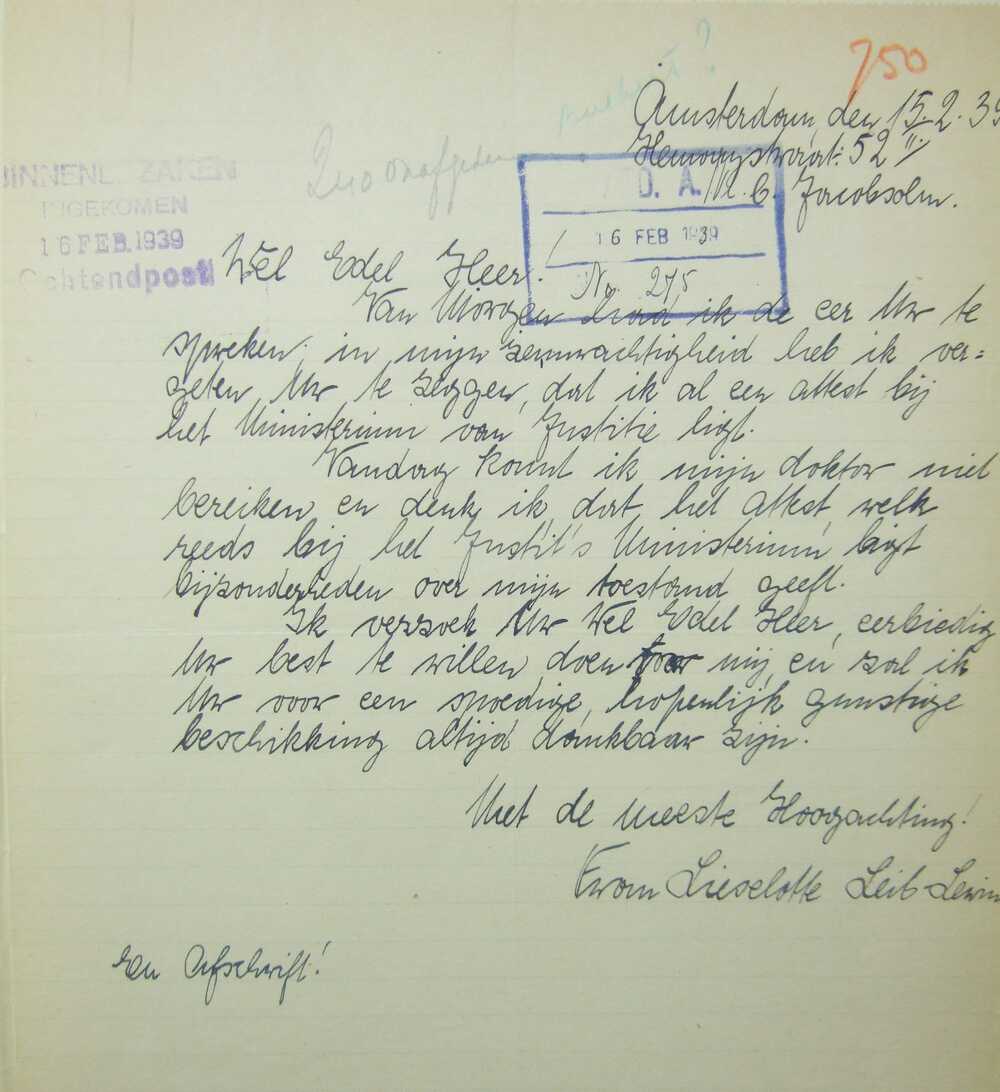 750
Amsterdam, den 15.2.39
52 III.
b. Jacobsohn.
BINNENL. ZAKEN
INGEKOMEN
16 FEB. 1939
Ochtendpost
D. A.
16 FEB 1939
No. 275
Wel Edel Heer!
Van Morgen had ik de eer Uw te
spreken; in mijn zenuwachtigheid heb ik ver=
geten, Uw te zeggen, dat ik al een attest bij
het Ministerium van Justitie ligt.
Vandaag konnt ik mijn doktor niet
bereiken en denk ik dat het attest, welk
reeds bij het Justit's Ministerium ligt
bijzonderheden over mijn toestand geeft.
Ik verzoek Uw Wel Edel Heer, eerbiedig
Uw best te willen doen voor mij, en zal ik
Uw voor een spoedige, hopenlijk gunstige
beschikking altijd dankbaar zijn.
Met de meeste Hoogachting!
Frau Lieselotte Leib-Lewin
En Afschrift!